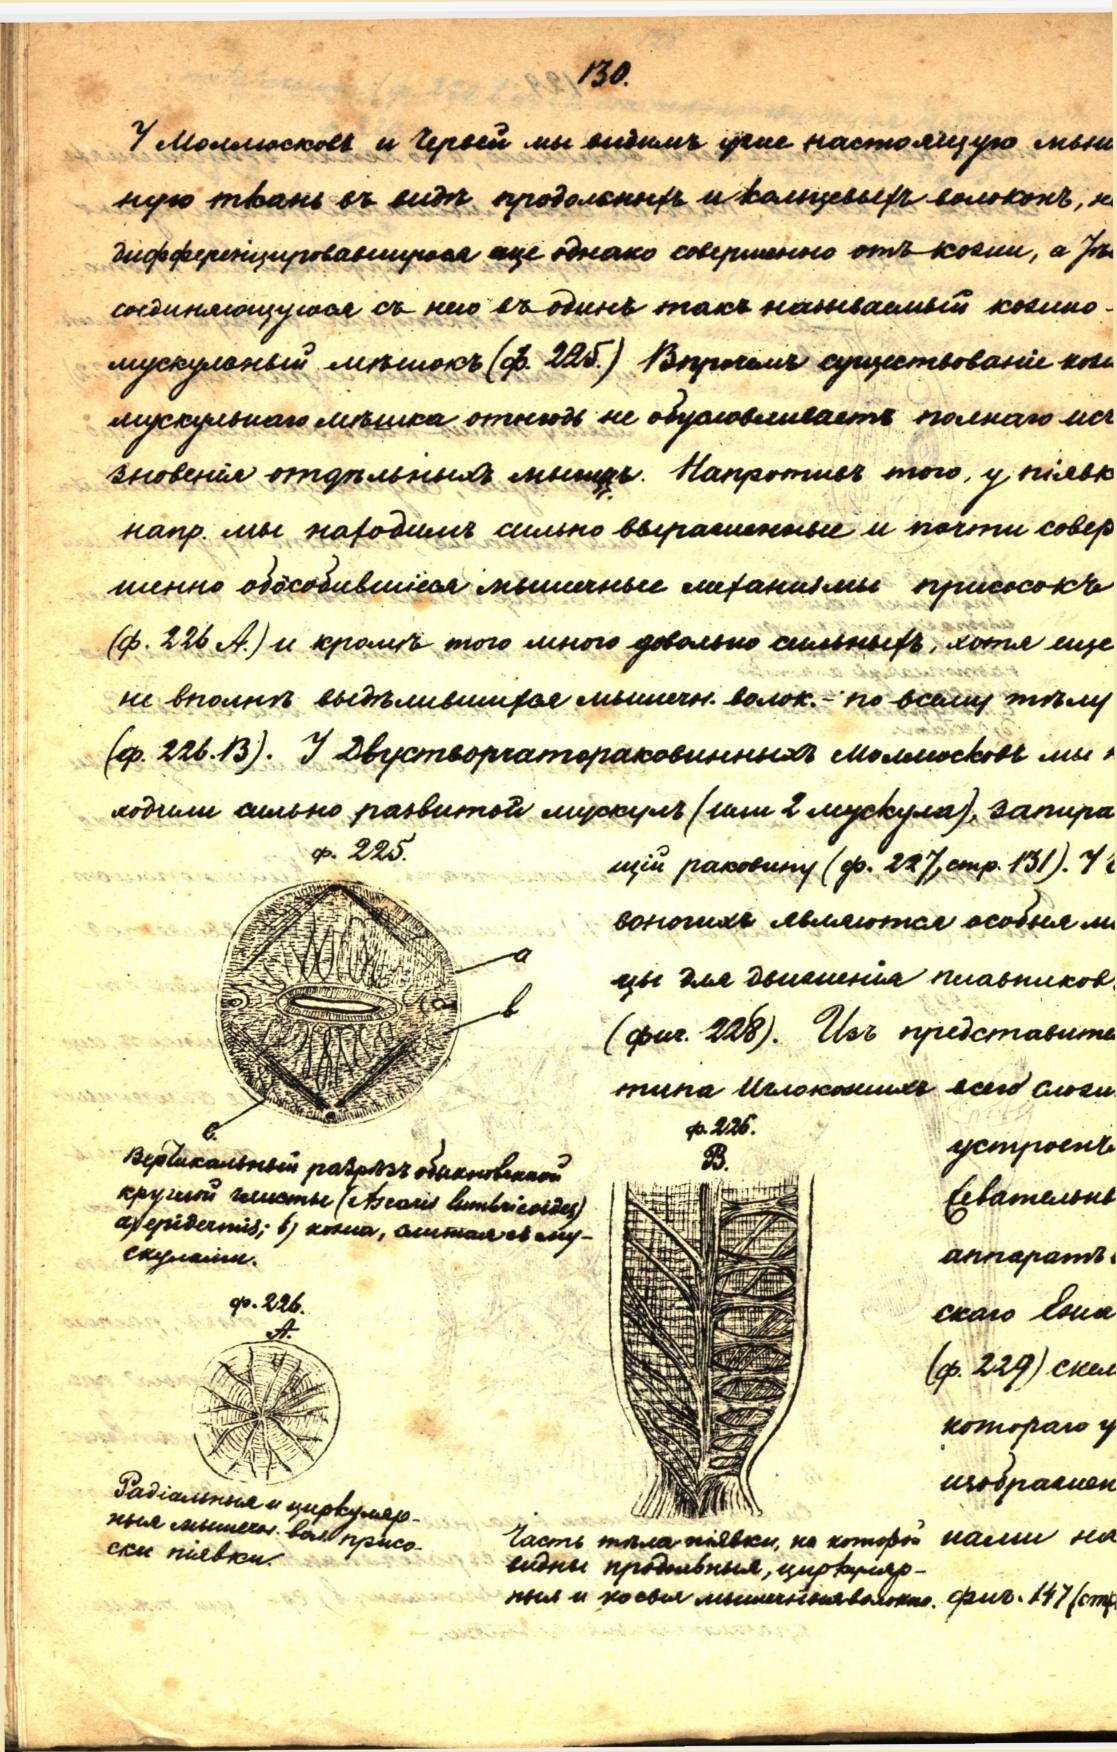 130.
У Моллюсковъ и Червей мы видимъ уже настоящую мыш
ную ткань въ видѣ продольныхъ и кольцевыхъ волоконъ, н
дифференцировавшуюся еще однако совершенно отъ кожи, а
соединяющуюся съ нею въ одинъ такъ называемый кожно-
мускульный мѣшокъ (ф. 225.) Впрочемъ существованіе кож
мускульнаго мѣшка отнюдь не обусловливаетъ полнаго исч
зновенія отдѣльныхъ мышцъ. Напротивъ того, у піявк
напр. мы находимъ сильно выраженные и почти совер
шенно обособившіеся мышечные механизмы присосокъ
(ф. 226 А.) и кромѣ того много довольно сильныхъ, хотя еще
не вполнѣ выдѣлившихся мышечн. волок. - по всему тѣлу
(ф. 226.В). У Двустворчатораковинныхъ Моллюсковъ мы н
ходили сильно развитой мускулъ (или 2 мускула), запира
щій раковину (ф. 227, стр. 131). У
воногихъ являются особыя мы
цы для движенія плавников
(фиг. 228). Изъ представите
типа Иглокожихъ всего сложн
ф. 225.
а
в
с.
Вертикальный разрѣзъ обыкновенной
круглой глисты (Ascaris lumbricoides)
а) epidermis; b) кожа, слитая съ му-
скулами.
ф. 226.
А.
Радіальныя и циркуляр-
ныя мышечн. вол. присо-
ски піявки.
ф. 226.
В.
Часть тѣла піявки, на которой
видны продольныя, циркуляр-
ныя и косыя мышечныя волокна.
устроенъ
жевательны
аппаратъ
скаго Ежа
(ф. 229) скел
котораго у
изображен
нами на
фиг. 147 (стр.